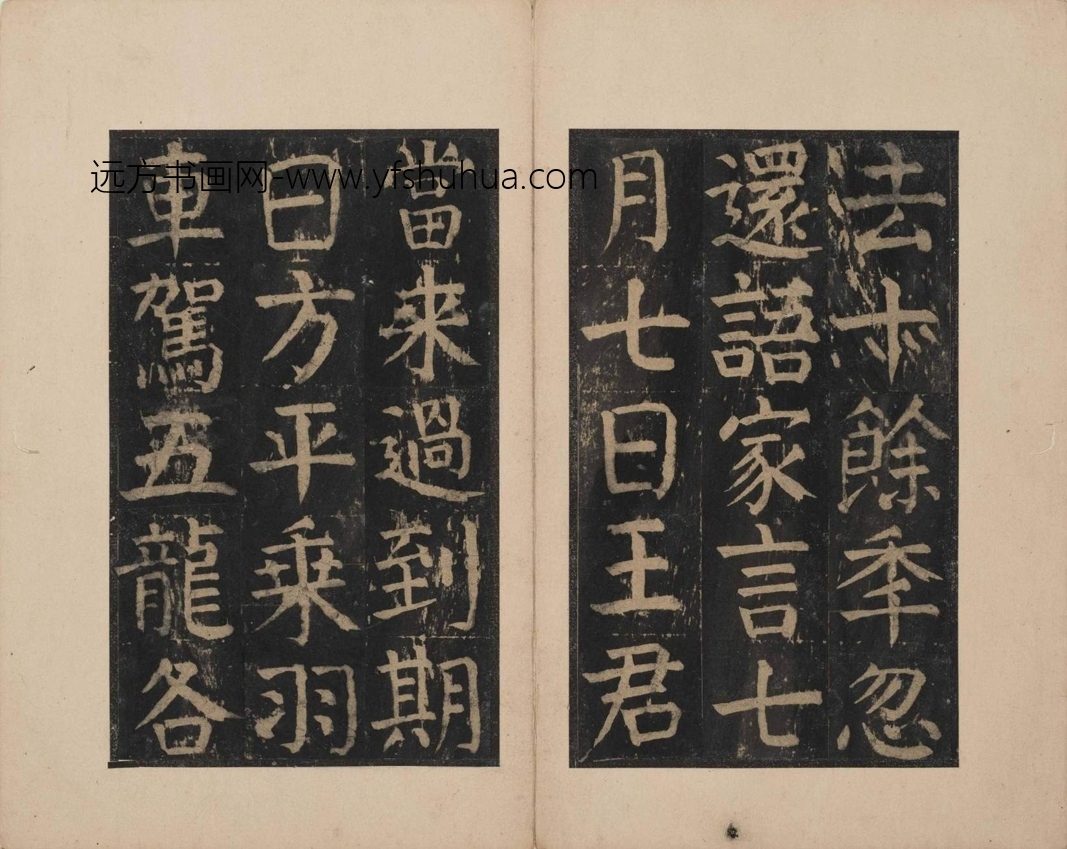 法十餘秊忽
還語家言七
月七日王君
當来過到期
日方平乗羽
車駕五龍各
远方书画网-www.yfshuhua.com